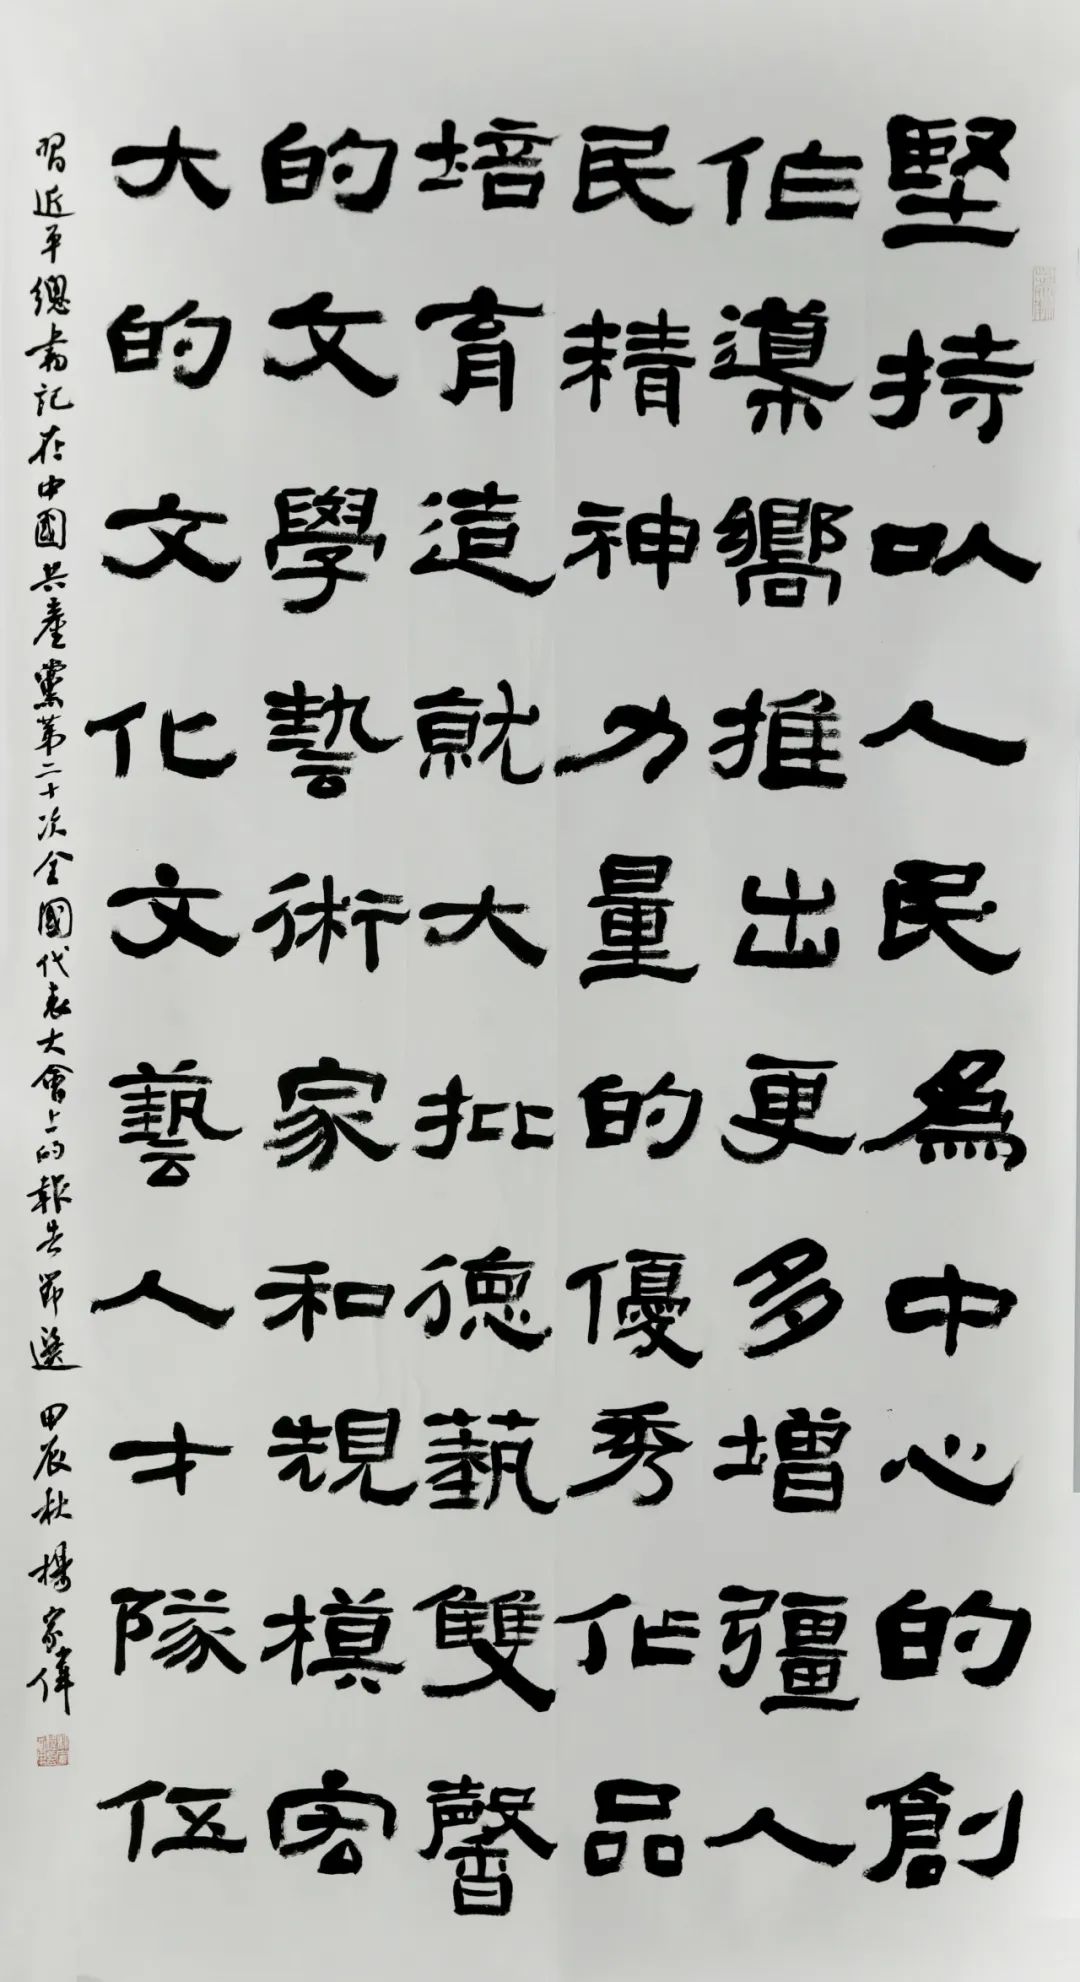 堅持以人民爲中心的創
作導嚮推出更多增彊人
民精神力量的優秀作品
培育造就大批德藝雙馨
的文學藝術家和規模宏
大的文化文藝人才隊伍
習近平總書記在中國共產黨第二十次全國代表大會上的報告節選 甲辰秋 楊家偉